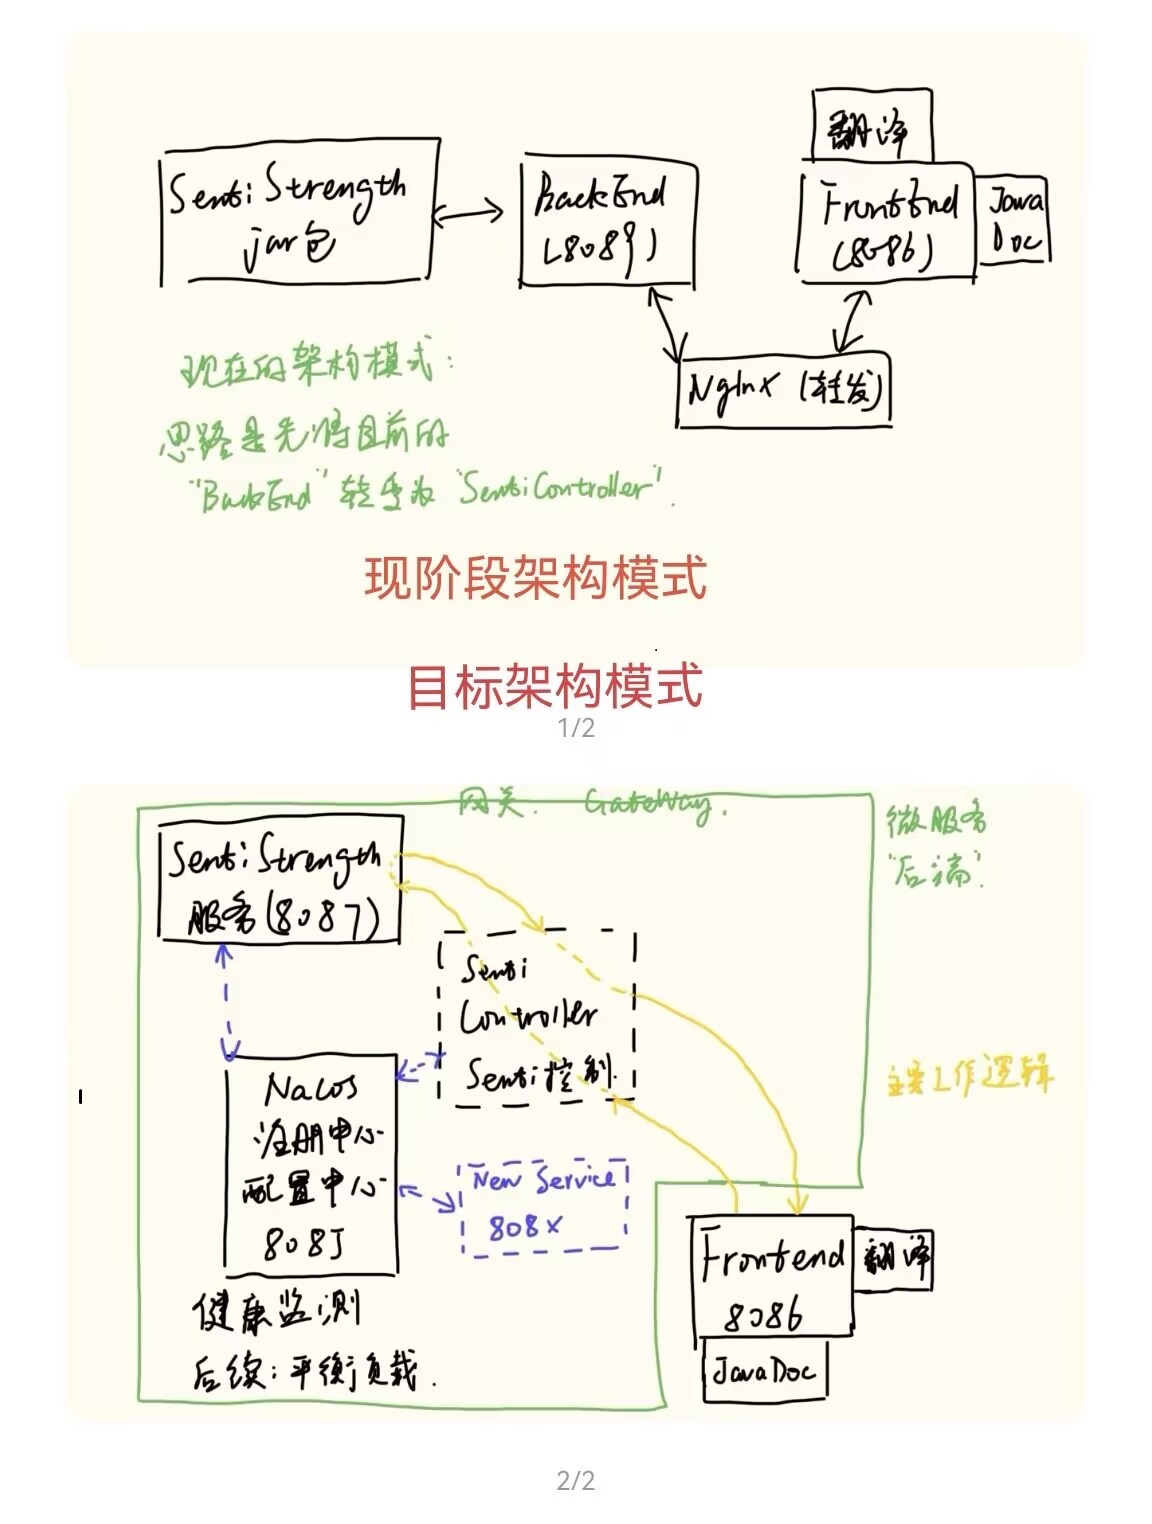 SentiStrength
jar包
BackEnd
(8089)
翻译
FrontEnd
(8086)
Java
Doc
Nginx (转发)
现在的架构模式:
思路是先将目前的
"BackEnd" 转变为 "SentiController".
现阶段架构模式
目标架构模式
1/2
网关. GateWay.
微服务
"后端".
SentiStrength
服务(8087)
Senti
Controller
Senti控制.
主要工作逻辑
Nacos
注册中心
配置中心
New Service
808X
健康监测
后续: 平衡负载.
Frontend
8086
翻译
JavaDoc
2/2